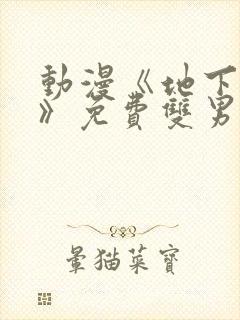 動漫《地下
》免費雙男
暈猫菜寶